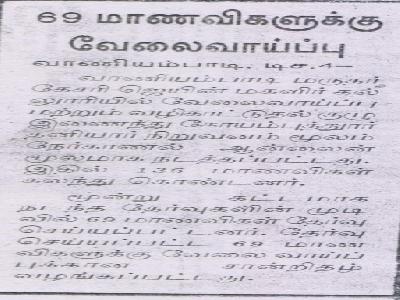 69 மாணவிகளுக்கு
வேலைவாய்ப்பு
வாணியம்பாடி, டிச.1–
வாணியம்பாடி மருதர்
கேசரி ஜெயின் மகளிர் கல்
லூரியில் வேலைவாய்ப்பு
மற்றும் வழிகாட்டுதல் குழு
இணைந்து கோயம்புத்தூர்
தனியார் நிறுவனம் மூலம்
நேர்காணல் ஆன்லைன்
மூலமாக நடத்தப்பட்டது.
இதில் 136 மாணவிகள்
கலந்து கொண்டனர்.
மூன்று கட்டமாக
நடந்த தேர்வுகளின் முடி
வில் 69 மாணவிகள் தேர்வு
செய்யப்பட்டனர். தேர்வு
செய்யப்பட்ட 69 மாண
விகளுக்கு வேலை வாய்ப்
புக்கான சான்றிதழ்
வழங்கப்பட்டது.